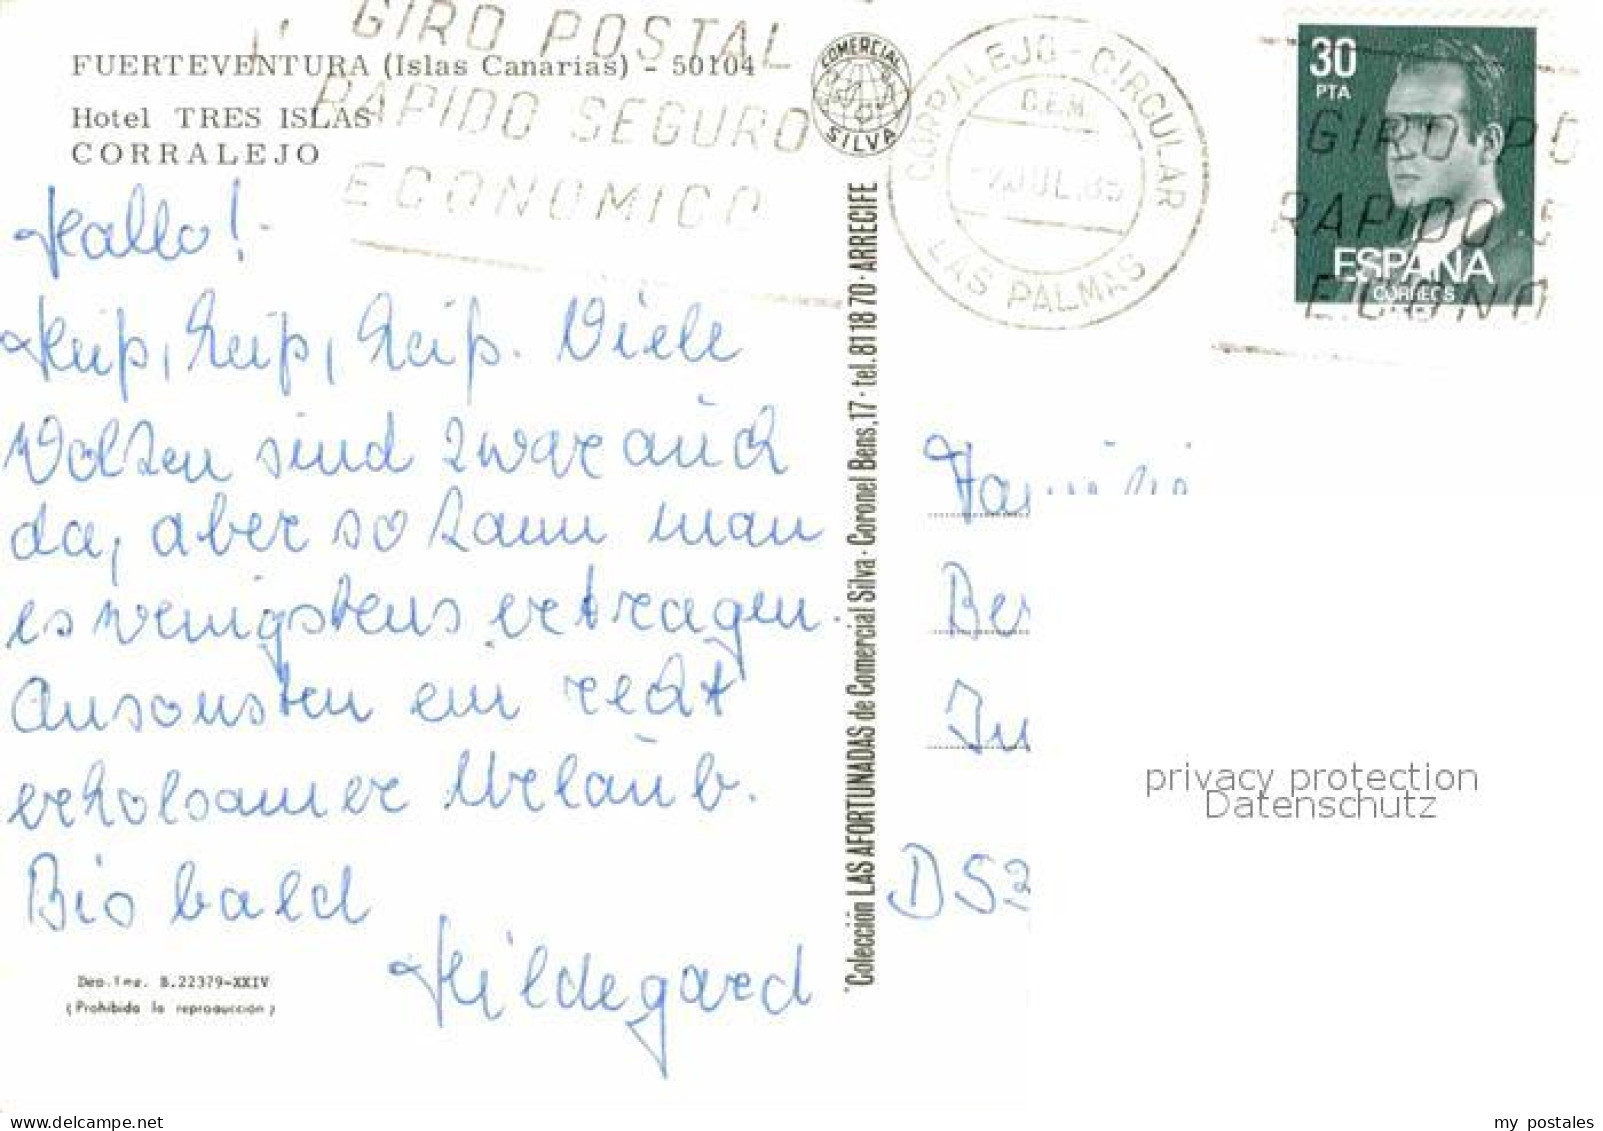 GIRO POSTAL
RAPIDO SEGURO
ECONOMICO
FUERTEVENTURA (Islas Canarias) - 50104
Hotel TRES ISLAS
CORRALEJO
COMERCIAL SILVA
CORRALEJO - CIRCULAR
C.E.M.
JUL. 85
LAS PALMAS
30
PTA
ESPAÑA
CORREOS
GIRO PO
RAPIDO S
ECONO
Hallo!
Heiß, heiß, heiß. Viele
Wolken sind zwar auch
da, aber so kann man
es wenigstens ertragen.
Ansonsten ein recht
erholsamer Urlaub.
Bis bald
Hildegard
Dep. Leg. B.22379-XXIV
(Prohibida la reproducción)
"Colección LAS AFORTUNADAS de Comercial Silva · Coronel Bens, 17 · tel. 81 18 70 · ARRECIFE
Ber
D 53
privacy protection
Datenschutz
my postales
delcampe.net